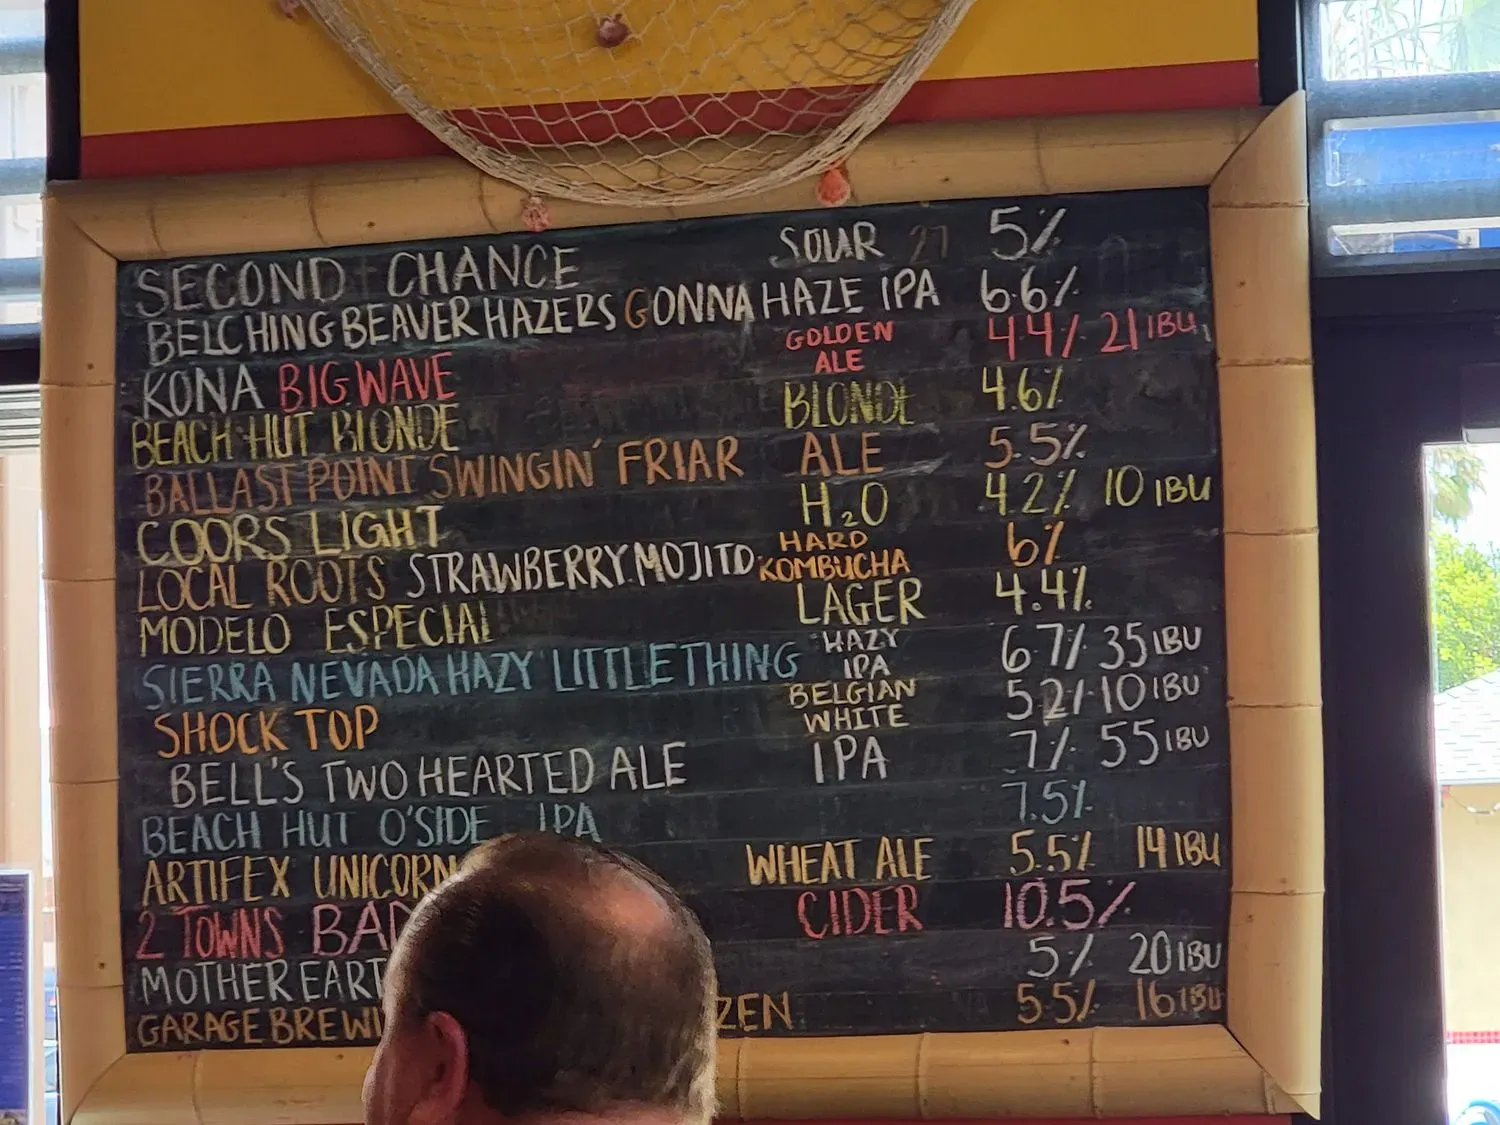 SECOND CHANCE SOUR 27 5%
BELCHING BEAVER HAZERS GONNA HAZE IPA 6.6%
KONA BIG WAVE GOLDEN ALE 4.4% 21 IBU
BEACH HUT BLONDE BLONDE 4.6%
BALLAST POINT SWINGIN' FRIAR ALE 5.5%
COORS LIGHT H₂O 4.2% 10 IBU
LOCAL ROOTS STRAWBERRY MOJITO HARD KOMBUCHA 6%
MODELO ESPECIAL LAGER 4.4%
SIERRA NEVADA HAZY LITTLE THING HAZY IPA 6.7% 35 IBU
SHOCK TOP BELGIAN WHITE 5.2% 10 IBU
BELL'S TWO HEARTED ALE IPA 7% 55 IBU
BEACH HUT O'SIDE IPA 7.5%
ARTIFEX UNICORN WHEAT ALE 5.5% 14 IBU
2 TOWNS BAD CIDER 10.5%
MOTHER EART 5% 20 IBU
GARAGE BREWI ZEN 5.5% 16 IBU